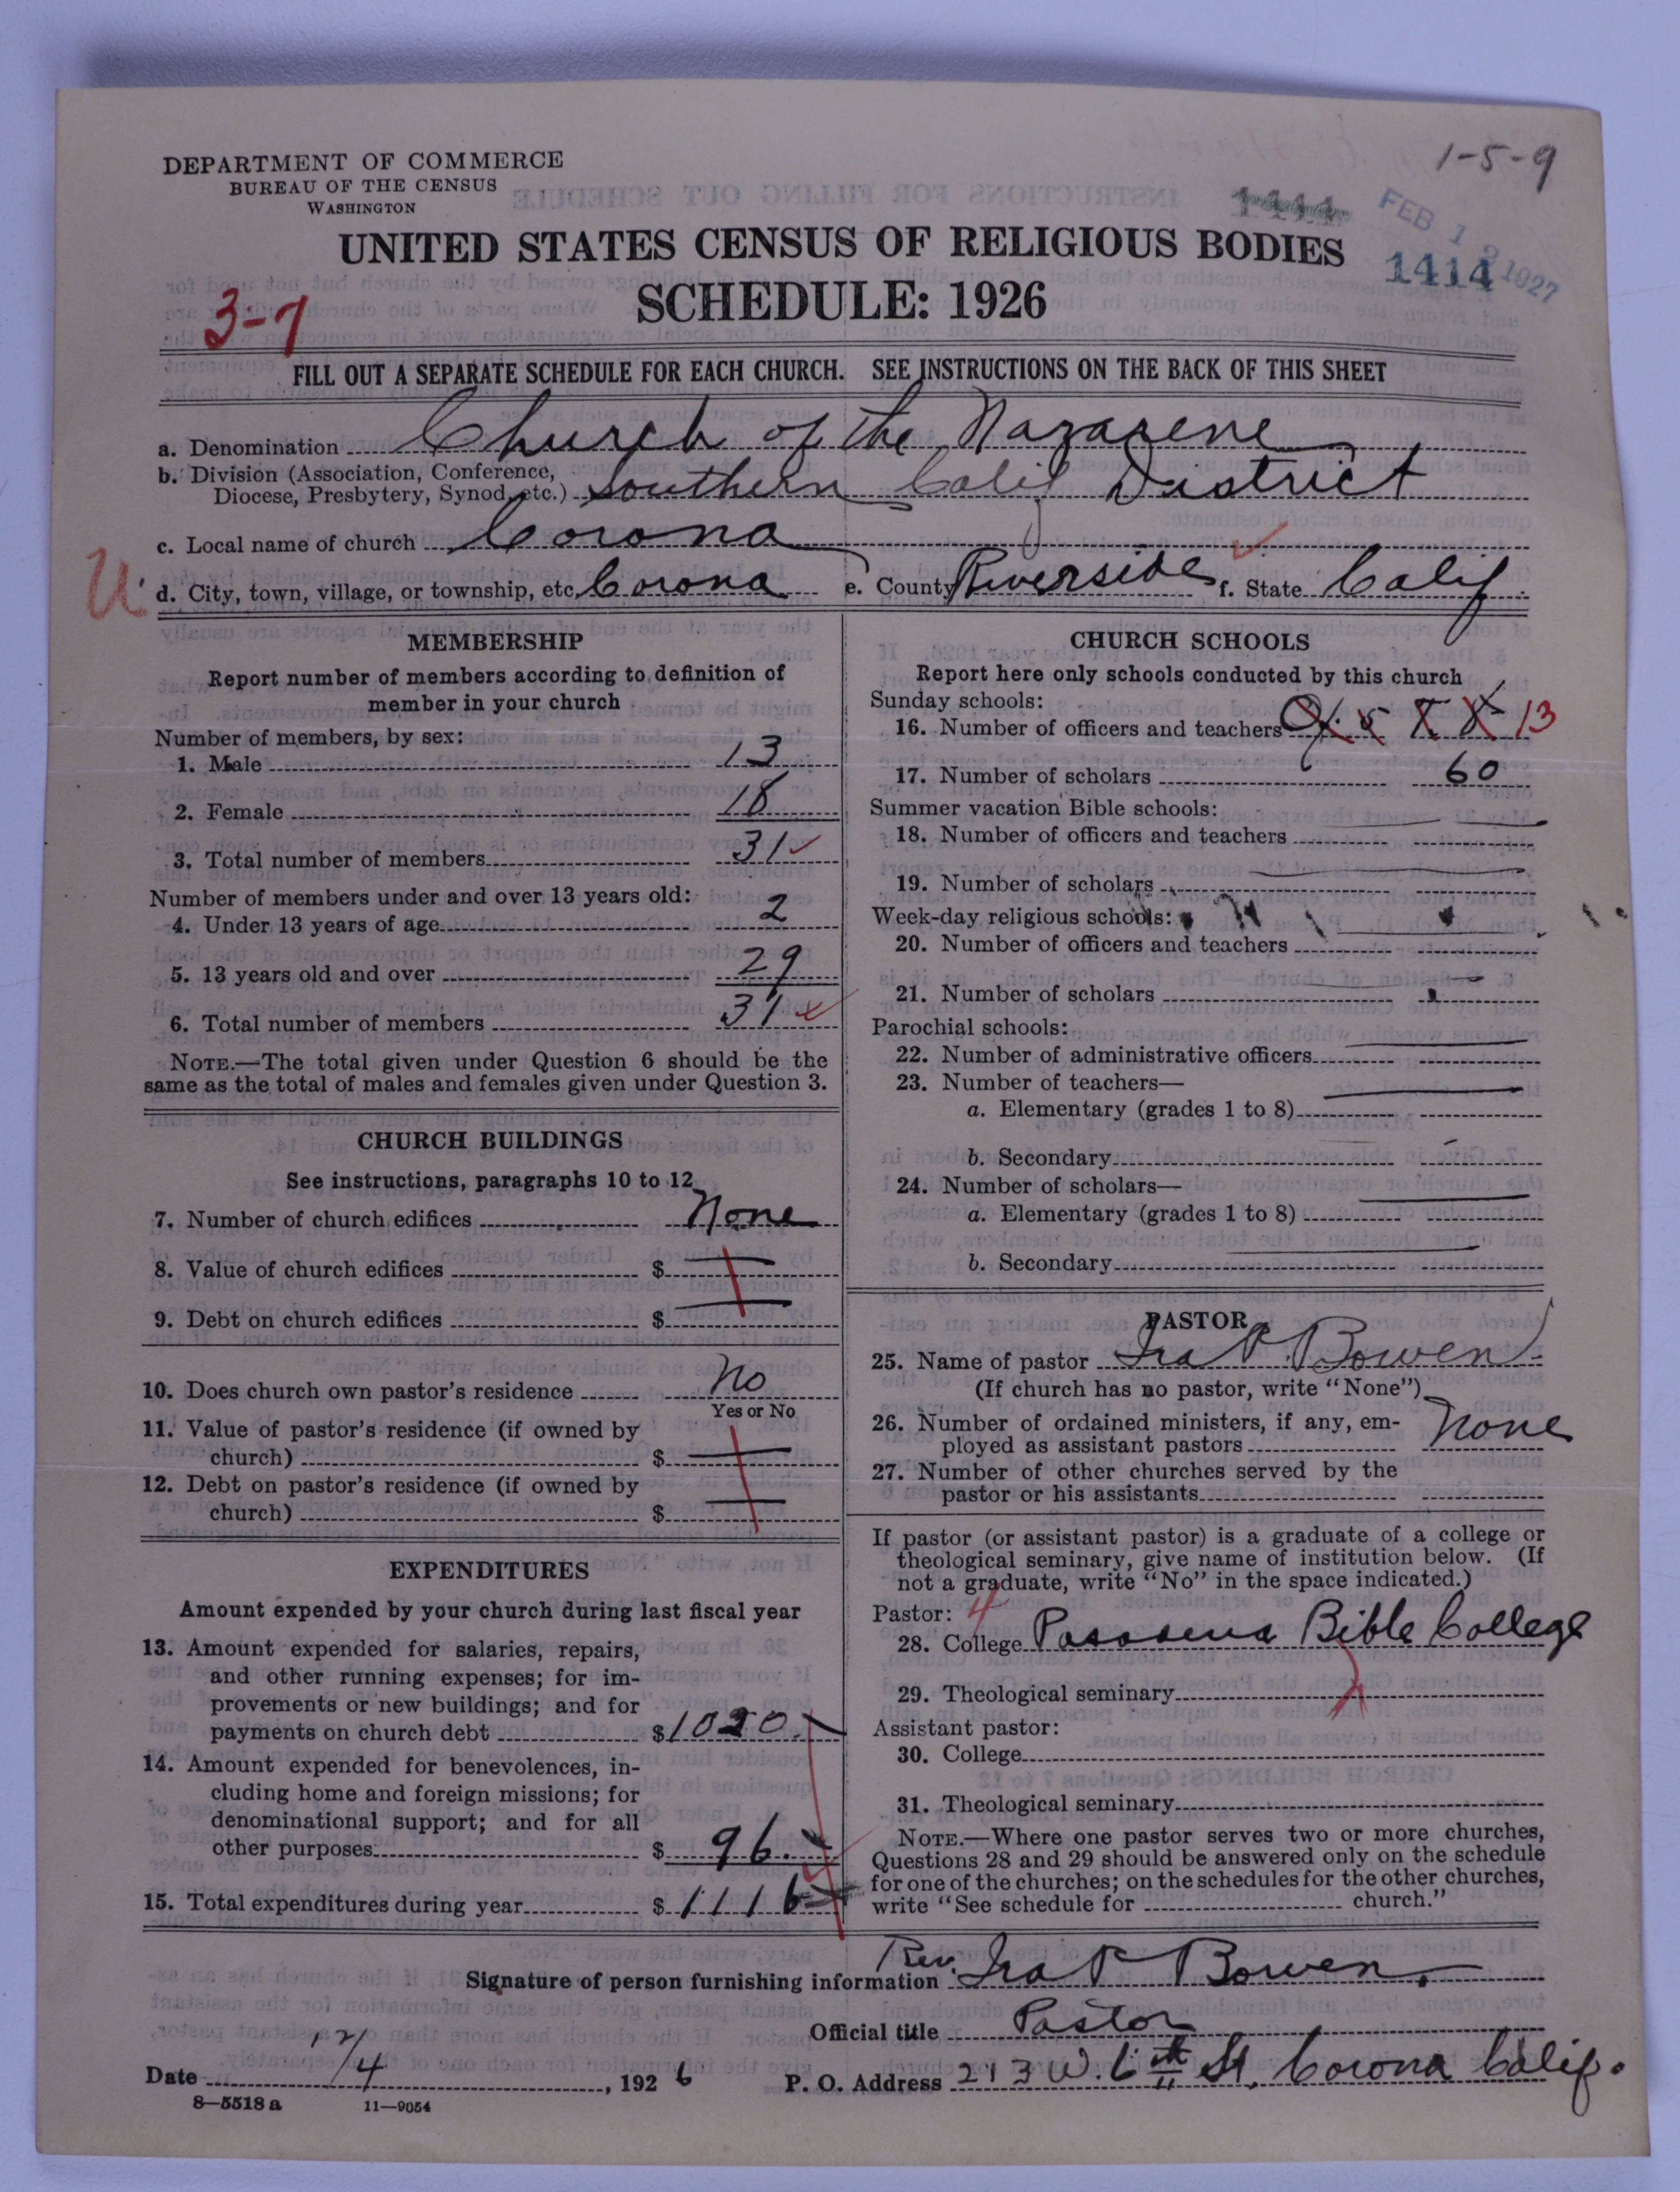 1-5-9
DEPARTMENT OF COMMERCE
BUREAU OF THE CENSUS
WASHINGTON
1414
FEB 12 1927
UNITED STATES CENSUS OF RELIGIOUS BODIES
1414
SCHEDULE: 1926
3-7
FILL OUT A SEPARATE SCHEDULE FOR EACH CHURCH. SEE INSTRUCTIONS ON THE BACK OF THIS SHEET
a. Denomination Church of the Nazarene
b. Division (Association, Conference,
Diocese, Presbytery, Synod, etc.) Southern Calif District
c. Local name of church Corona
U
d. City, town, village, or township, etc. Corona e. County Riverside f. State Calif
MEMBERSHIP
Report number of members according to definition of
member in your church
Number of members, by sex:
1. Male 13
2. Female 18
3. Total number of members 31
Number of members under and over 13 years old:
4. Under 13 years of age 2
5. 13 years old and over 29
6. Total number of members 31
NOTE.—The total given under Question 6 should be the
same as the total of males and females given under Question 3.
CHURCH BUILDINGS
See instructions, paragraphs 10 to 12
7. Number of church edifices None
8. Value of church edifices $
9. Debt on church edifices $
10. Does church own pastor's residence No
Yes or No
11. Value of pastor's residence (if owned by
church) $
12. Debt on pastor's residence (if owned by
church) $
EXPENDITURES
Amount expended by your church during last fiscal year
13. Amount expended for salaries, repairs,
and other running expenses; for im-
provements or new buildings; and for
payments on church debt $1020.
14. Amount expended for benevolences, in-
cluding home and foreign missions; for
denominational support; and for all
other purposes $ 96.
15. Total expenditures during year $1116
CHURCH SCHOOLS
Report here only schools conducted by this church
Sunday schools:
16. Number of officers and teachers 13
17. Number of scholars 60
Summer vacation Bible schools:
18. Number of officers and teachers
19. Number of scholars
Week-day religious schools:
20. Number of officers and teachers
21. Number of scholars
Parochial schools:
22. Number of administrative officers
23. Number of teachers—
a. Elementary (grades 1 to 8)
b. Secondary
24. Number of scholars—
a. Elementary (grades 1 to 8)
b. Secondary
PASTOR
25. Name of pastor Ira P Bowen
(If church has no pastor, write "None")
26. Number of ordained ministers, if any, em-
ployed as assistant pastors None
27. Number of other churches served by the
pastor or his assistants
If pastor (or assistant pastor) is a graduate of a college or
theological seminary, give name of institution below. (If
not a graduate, write "No" in the space indicated.)
Pastor: 4
28. College Pasadena Bible College
29. Theological seminary
Assistant pastor:
30. College
31. Theological seminary
NOTE.—Where one pastor serves two or more churches,
Questions 28 and 29 should be answered only on the schedule
for one of the churches; on the schedules for the other churches,
write "See schedule for church."
Signature of person furnishing information Rev. Ira P Bowen.
Official title Pastor
Date 12/4, 1926 P. O. Address 213 W. 6th St. Corona Calif.
8—5518 a 11—9054